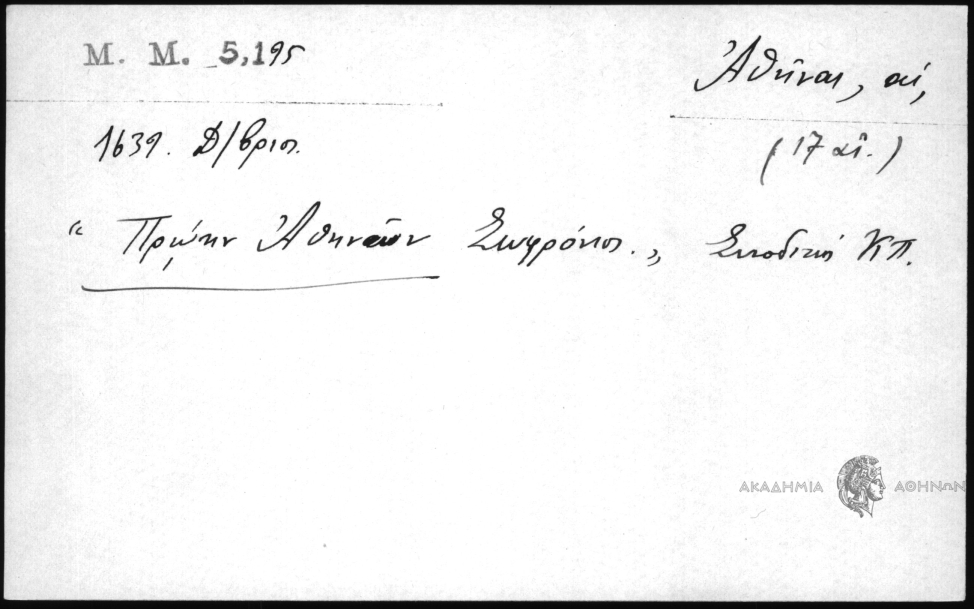 M. M. 5,195
Ἀθῆναι, αἱ,
1639. Δ/βριος.
(17 αἰ.)
“ Πρώην Ἀθηνῶν Σωφρόνιος. „ Συνοδικὸς ΚΠ.
ΑΚΑΔΗΜΙΑ ΑΘΗΝΩΝ